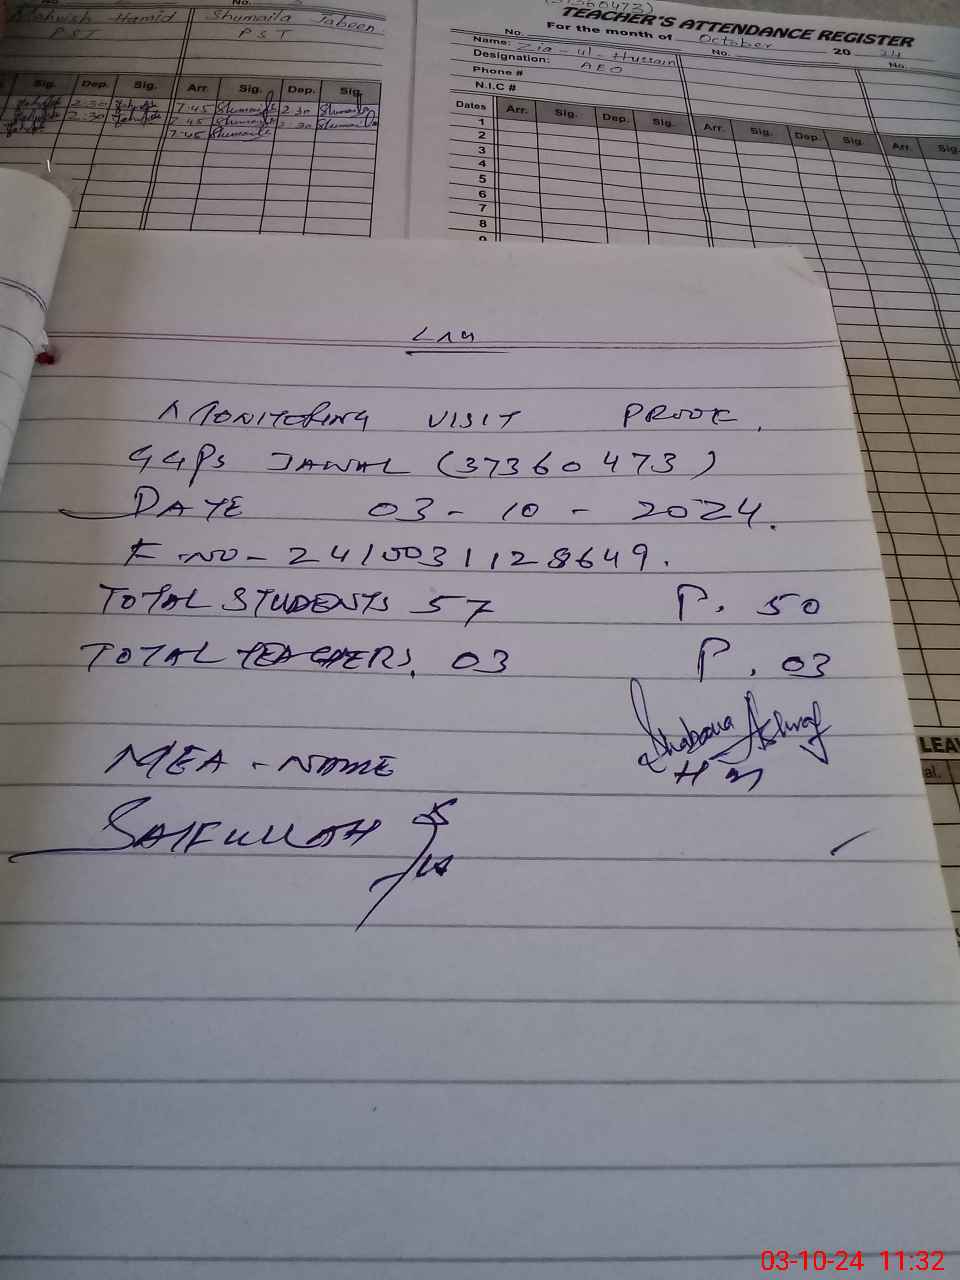 Mehwish Hamid Shumaila Jabeen
PST PST
Sig. Dep. Sig. Arr. Sig. Dep. Sig.
2:30 7:45 Shumaila 2:30 Shumaila
2:30 7:45 Shumaila 2:30 Shumaila
7:45 Shumaila
(37360473)
TEACHER'S ATTENDANCE REGISTER
For the month of October 20 24
No. No. No.
Name: Zia-ul-Hussain
Designation: AEO
Phone #
N.I.C #
Dates Arr. Sig. Dep. Sig. Arr. Sig. Dep. Sig. Arr. Sig.
1
2
3
4
5
6
7
8
9
MONITORING VISIT PROOF.
GGPS JAWAL (37360473)
DATE 03-10-2024.
F.NO-2410031128649.
TOTAL STUDENTS 57 P. 50
TOTAL TEACHERS. 03 P. 03
Shabana Ashraf
HM
MEA-NAME
SAIFULLAH
LEA
03-10-24 11:32